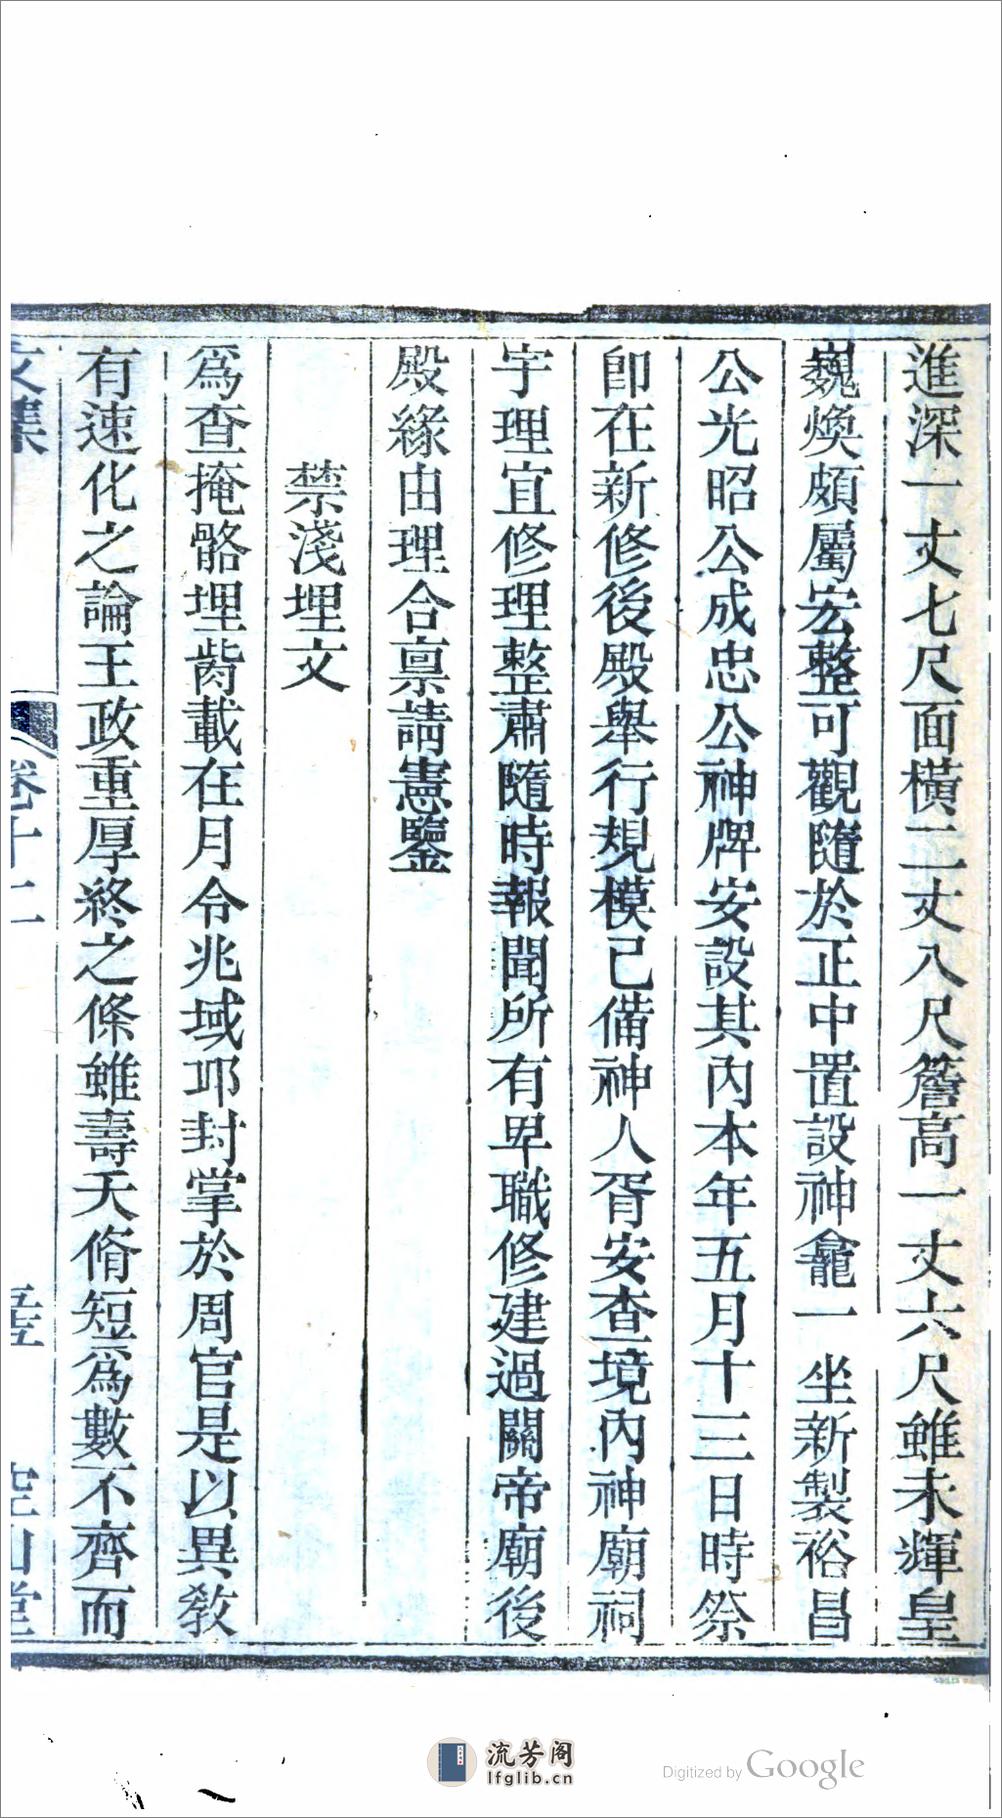 進深一丈七尺面橫二丈八尺簷高一丈六尺雖未輝皇
巍煥頗屬宏整可觀隨於正中置設神龕一坐新製裕昌
公光昭公成忠公神牌安設其內本年五月十三日時祭
卽在新修後殿舉行規模已備神人胥安查境內神廟祠
宇理宜修理整肅隨時報聞所有卑職修建過關帝廟後
殿緣由理合稟請憲鑒
禁淺埋文
爲查掩骼埋胔載在月令兆域邛封掌於周官是以異敎
有速化之論王政重厚終之條雖壽夭脩短爲數不齊而
文集
卷十二
空山堂
流芳阁
lfglib.cn
Digitized by Google